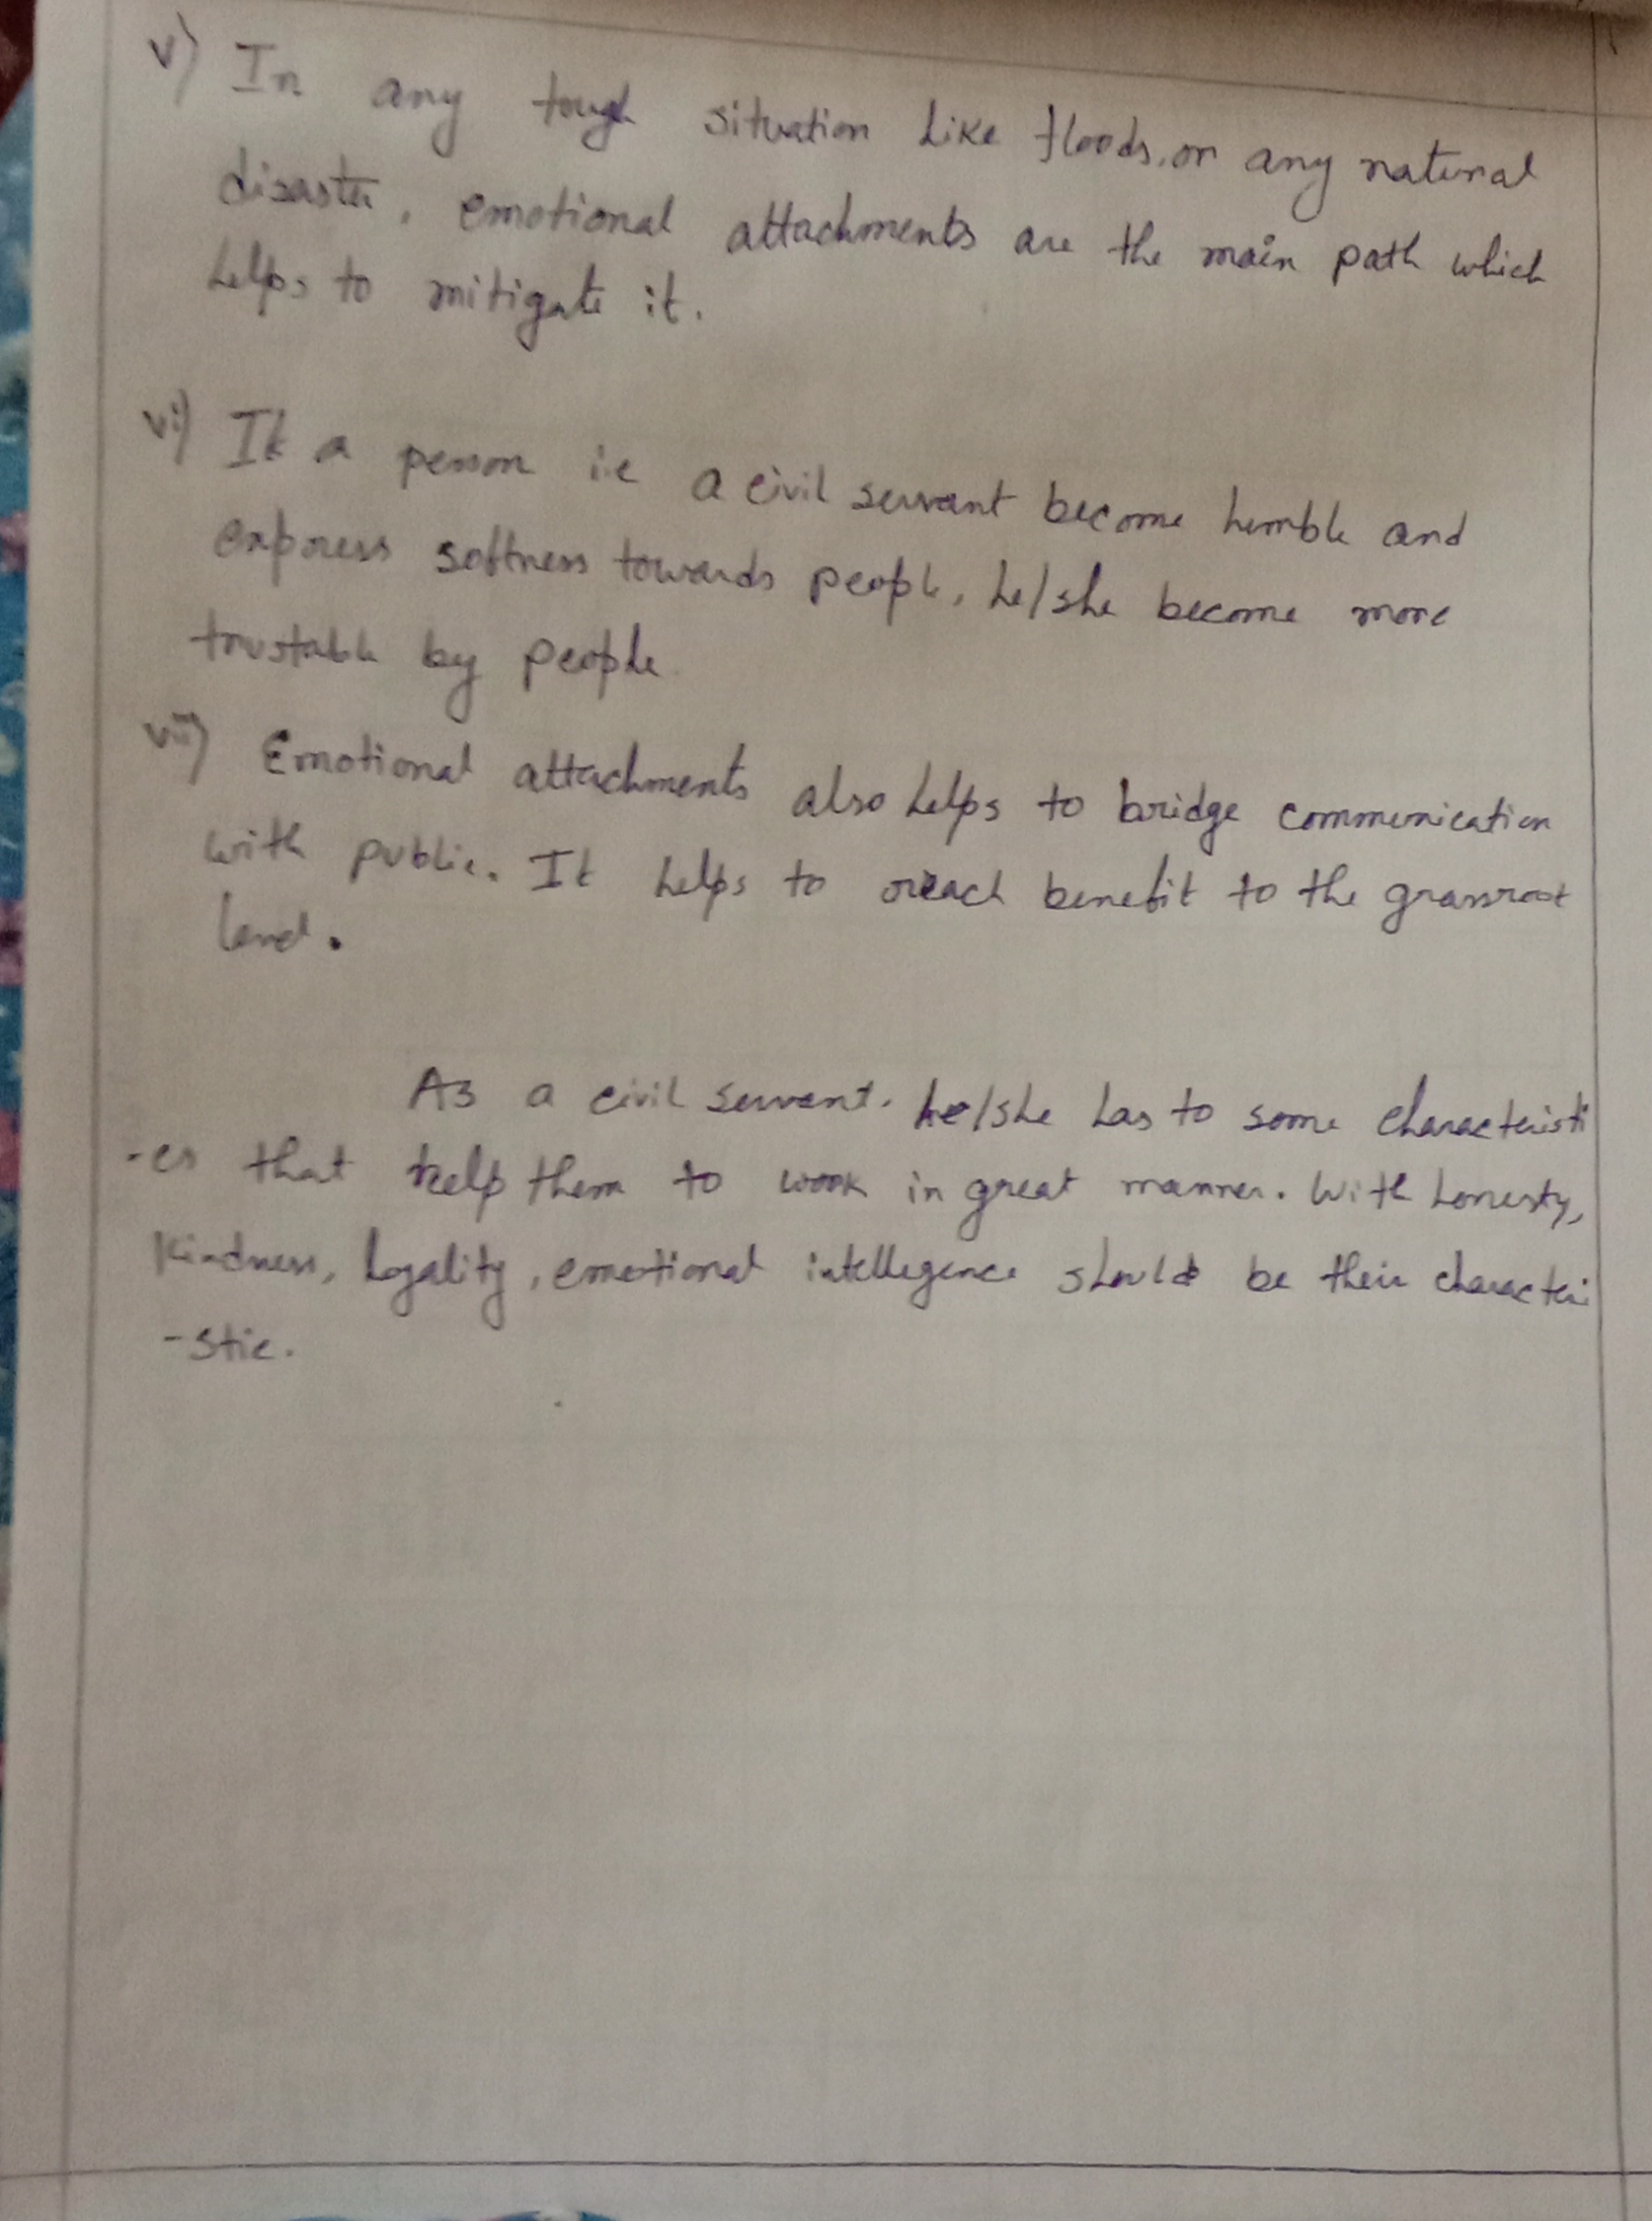 v) In any tough situation like floods, or any natural
disaster, emotional attachments are the main path which
helps to mitigate it.
vi) If a person i.e a civil servant become humble and
express softness towards people, he/she become more
trustable by people.
vii) Emotional attachments also helps to bridge communication
with public. It helps to reach benefit to the grassroot
level.
As a civil servant. he/she has to some characteristi
-cs that help them to work in great manner. With honesty,
kindness, loyality, emotional intellegence should be their characteri
-stic.